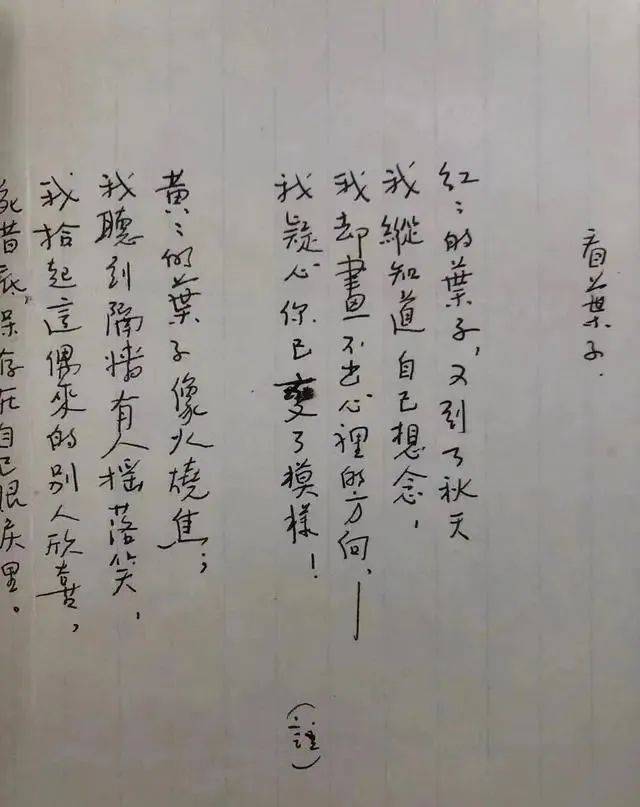 看葉子.
紅〻的葉子,又到了秋天
我縱知道自己想念,
我却畫不出心裡的方向,——
我疑心你已變了模樣! (註)
黃〻的葉子像火燒焦;
我聽到隔墻有人搖落笑,
我拾起這偶來的別人欣喜,
保存在自己眼里。